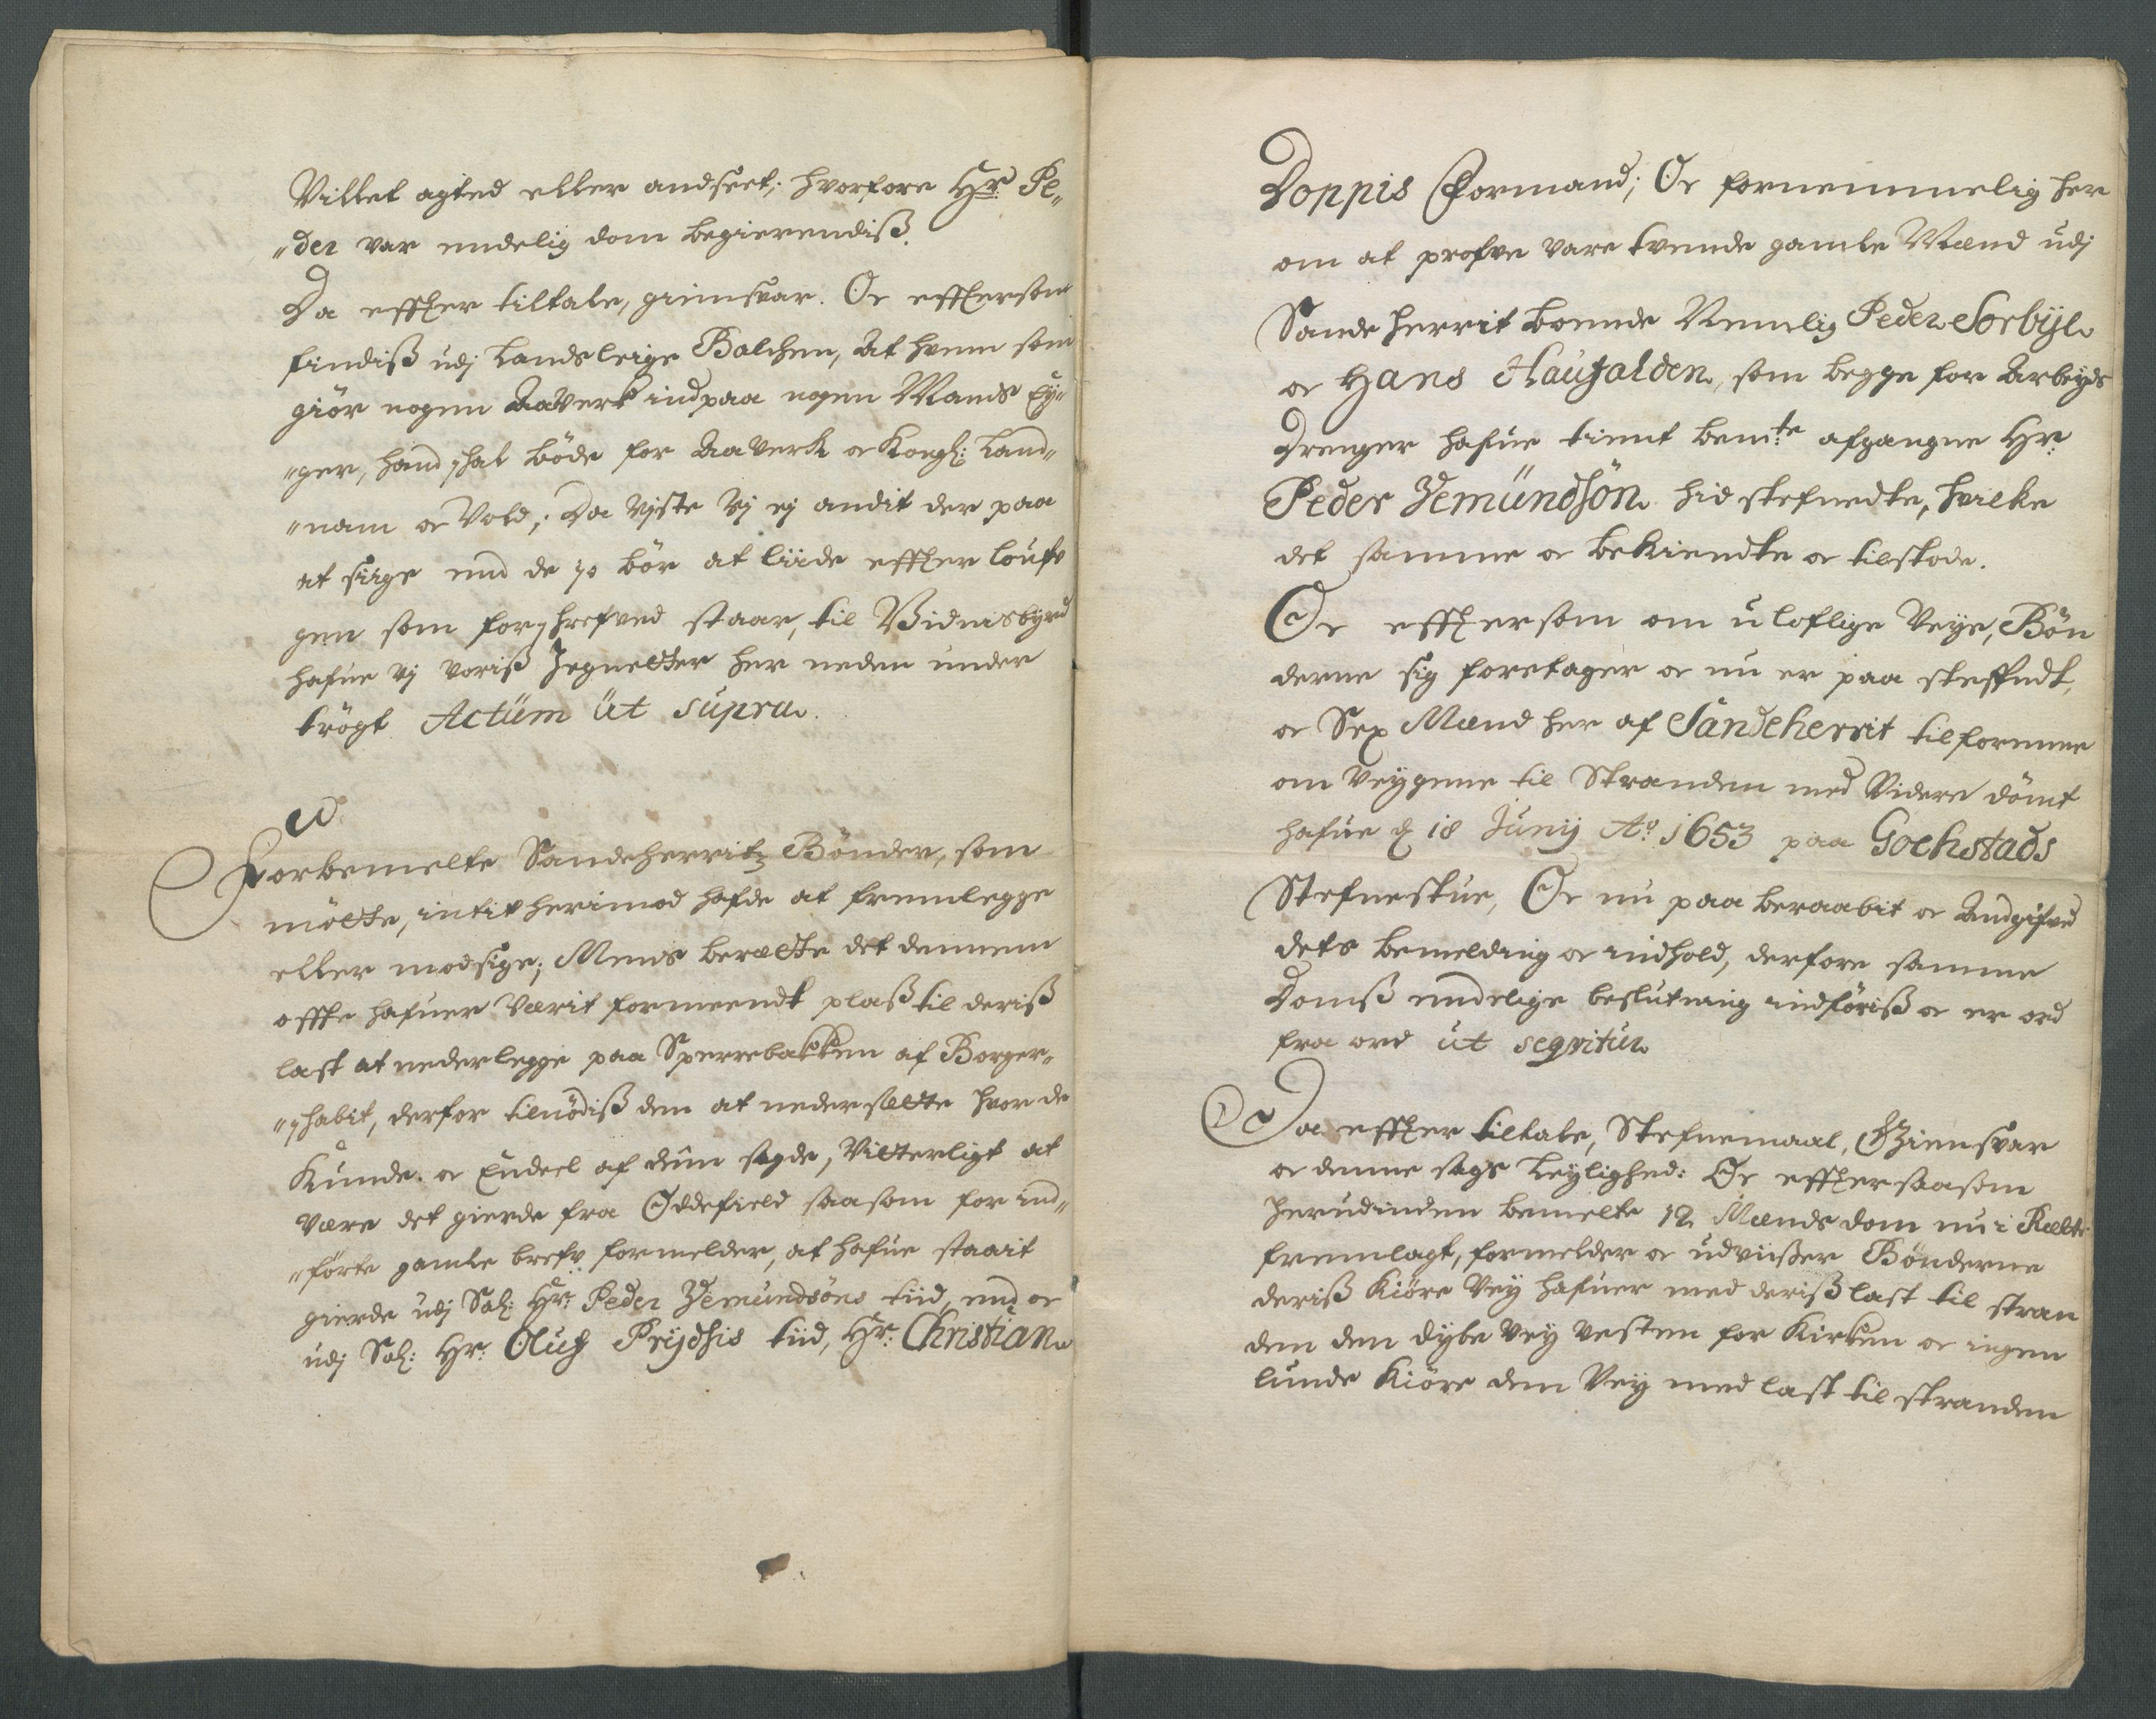 Villet agted eller andseet; hvorfore Hr: Pe„
„der var endelig dom begierendiß.
Da effter tiltale, giensvar. Oc effterson
findiß udj Landsleige Balchen, At hvem som
giör nogen Aaverk ind paa nogen Mands Ey„
„ger, hand schal böde for Aaverk oc Kongl: Land„
„nam oc Vold; Da Viste Vj ej andit der paa
at siige end de jo bör at liide effter louf
gen som forschrefved staar, til Vidnisbyrd
hafue Vj voriß Zegnetter her neden under
trögt Actüm üt süpra.
Forbemelte Sandeherritz Bönder, som
mötte, intit herimod hafde at fremlegge
eller modsige; Mens berette det dennem
offte hafuer Værit formeendt plaß til deriß
last at nederlegge paa Sperrebakken af Borger„
„schabit, derfor tilnödiß dem at nedersætte hvor de
Kunde. oc Endeel af dem sagde, Vitterligt at
være det gierde fra Oddefield saasom for ind„
„förte gamle brefv formelder, at hafue staait
gierde udj Sal: Hr: Peder Zemundsöns tiid, end oc
udj Sal: Hr: Oluf Prydhis tiid, Hr: Christian
Doppis Formand; Oc fornemmelig her
om at profve vare tvende gamle Mænd udj
Sande herrit boende Nemlig Peder Sorbye
oc Hans Haufalden, som begge for Arbeyds
Drenger hafue tient bemte afgangne Hr:
Peder Zemündsön hid stefnedte, hvilke
det samme oc bekiendte oc tilstode.
Oc effter som om uloflige Veye, Bön
derne sig foretager oc nu er paa steffndt,
oc Sex Mænd her af Sandeherrit tilforenne
om Veygene til Stranden med Videre dömt
hafue d 18 Junij Ao 1653 paa Gochstads
Stefnestue, Oc nu paa beraabit oc Andgifved
dets bemelding oc indhold, derfore samme
Domß endelige beslutning indföriß oc er ord
fra ord üt seqvitur
Da effter tiltale, Stefnemaal, Giensvar
oc denne sags Leylighed: Oc efftersaasom
herudinden bemelte 12 Mænds dom nu i Rætte
fremlagt, formelder oc udviißer Bönderne
deriß Kiöre Vey hafuer med deriß last til stran
den den dybe Vey Vesten for Kirken oc ingen
lunde Kiöre den Vey med last til stranden